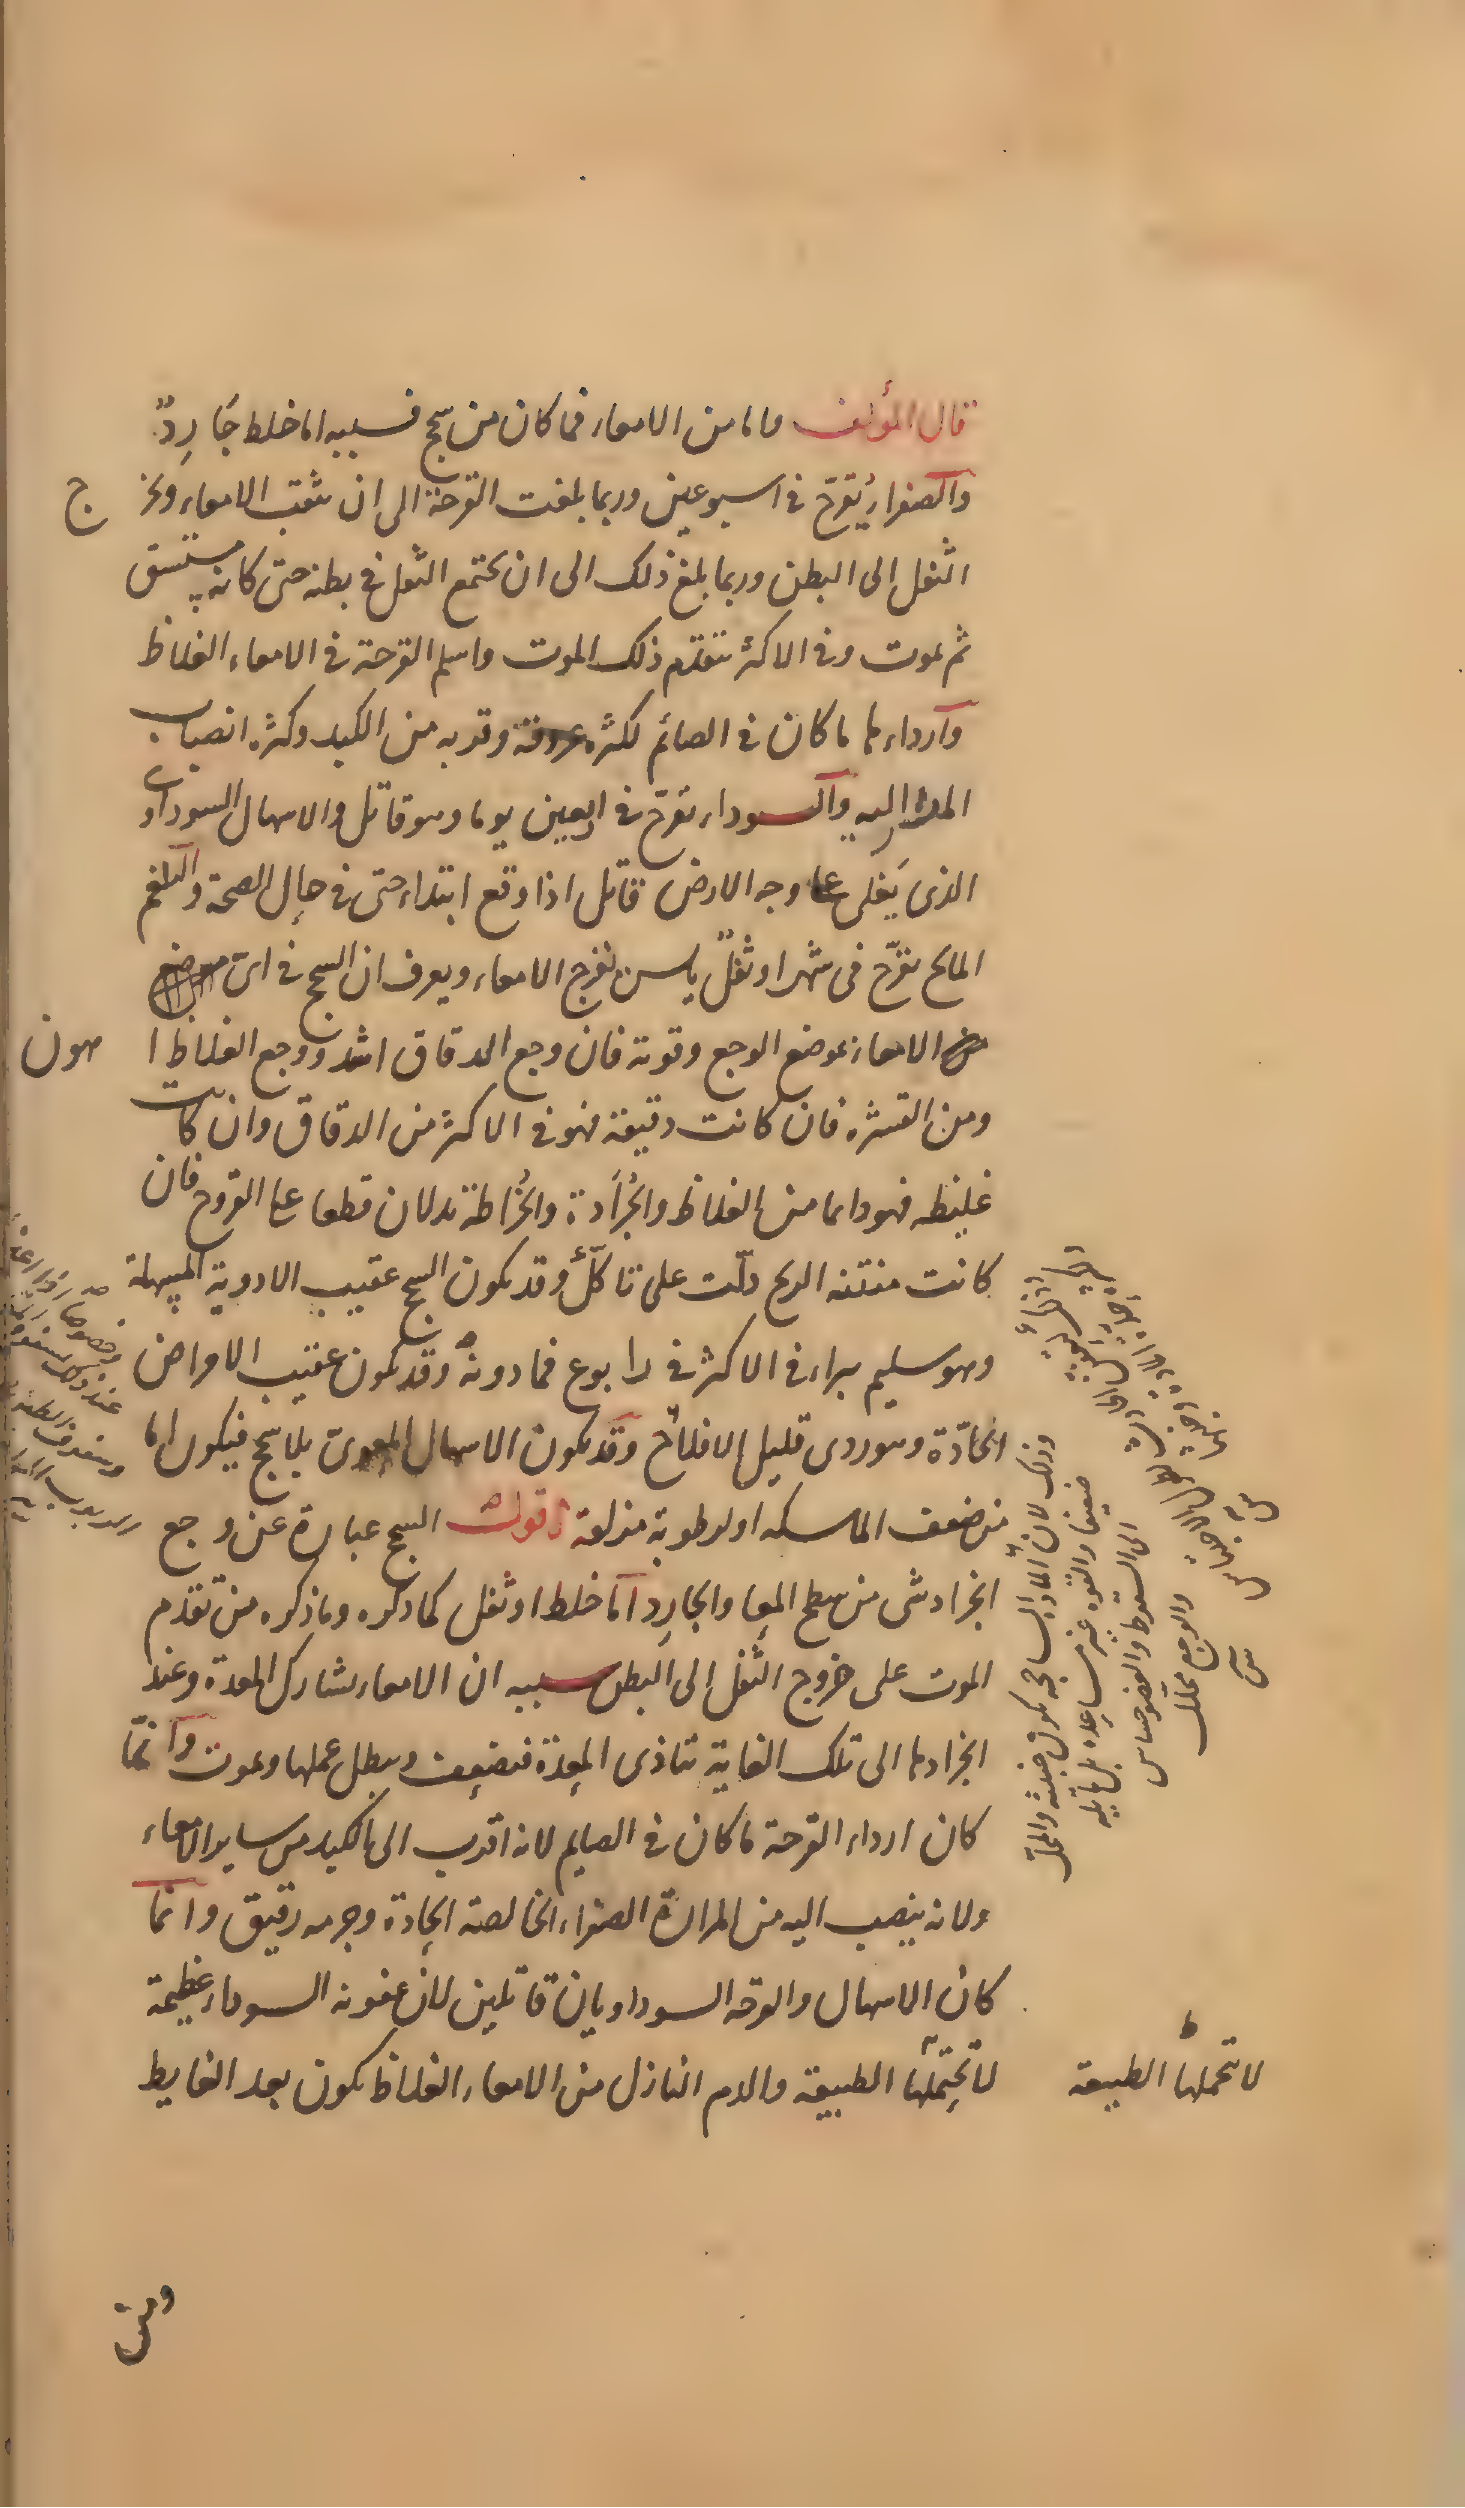 قال المؤلف واما من الامعاء فما كان من سحج فسببه اما خلط جَارِدّ
والصفرا يُقرّح فى اسبوعين وربما بلغت القرحة الى ان يثقب الامعاء ويخر ج
الثفل الى البطن وربما بلغ ذلك الى ان يجتمع الثفل فى بطنه حتى كانه مستسق
ثم يموت وفى الاكثر يتقدم ذلك الموت واسلم القرحة فى الامعاء الغلاظ
وارداءها ما كان فى الصائم لكثرة عروقه وقربه من الكبد وكثرة انصباب
المرار اليه والسوداء تقرّح فى اربعين يوما وهو قاتل والاسهال السوداوى
الذى يَغلى على وجه الارض قاتل اذا وقع ابتداء حتى فى حال الصحة والبلغم
المالح يقرّح فى شهر او ثفلٌ يابس يخرج الامعاء ويعرف ان السحج فى اىّ موضع
من الامعاء بموضع الوجع وقوته فان وجع الدقاق اشد ووجع الغلاظ ا هون
ومن القشرة فان كانت رقيقة فهو فى الاكثر من الدقاق وان كانت
غليظه فهو دايما من الغلاظ والجُرَادة والخُراطة يدلان قطعا على القروح فان
كانت منتنه الريح دلّت على تاكّلٌ وقد يكون السحج عقيب الادوية المسهلة
وهو سليم يبراء فى الاكثر فى اسبوع فما دونهٌ وقد يكون عقيب الامراض
الحادّة وهو ردى قليل الافلاح وقد يكون الاسهال المعوى بلا سحج فيكون اما
من ضعف الماسكه او لرطوبة مزلقة اقول السحج عبارة عن وجع
انجراد شى من سطح المعا والجارِد اما خلط او ثفل كما ذكره وما ذكره من تقدّم
الموت على خروج الثفل الى البطن سببه ان الامعاء يشارك المعدة وعند
انجرادها الى تلك الغاية تتاذى المعدة فتضعف ويبطل عملها ويموت وانمّا
كان ارداء القرحة ما كان فى الصايم لانه اقرب الى الكبد من ساير الامعاء
ولانه ينصب اليه من المرارة الصفراء الخالصة الحادة وجرمه رقيق وانما
كان الاسهال والقرحه السوداويان قاتلين لان عفونه السوداء عظيمة
لا تحتملها الطبيعة والدم النازل من الامعاء الغلاظ يكون بعد الغايط
لا تحملها الطبيعة
وذلك لان المادة الساحجة
ضعيفا والقوة غير مساعدة بل قابله
الى السقوط والعضو حساس
والوجع محلل
ومن